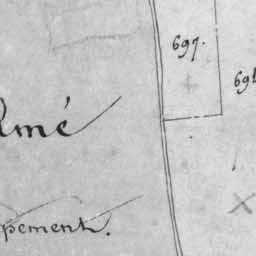 697.
lmé
pement.